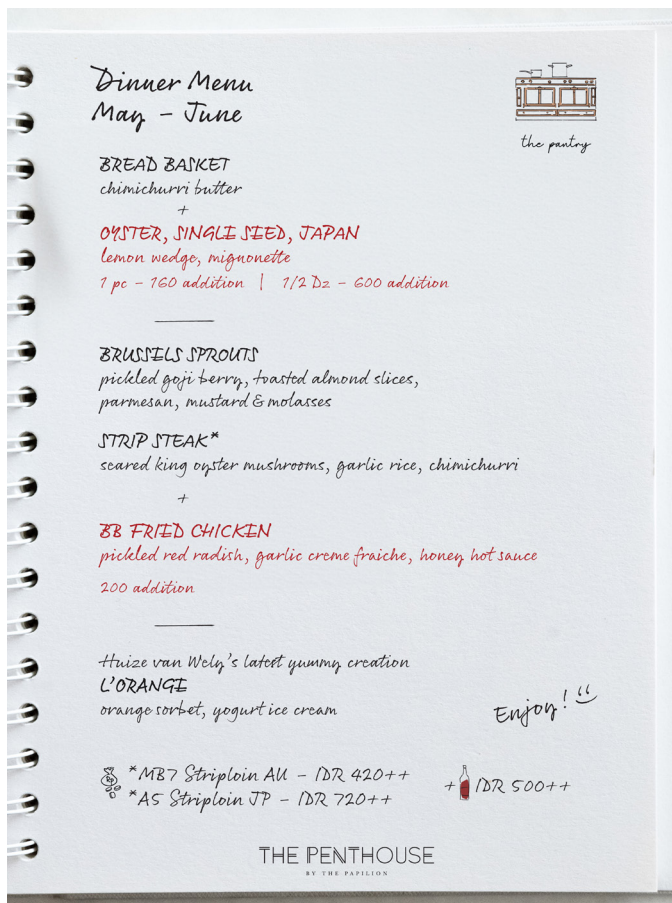 Dinner Menu
May - June
the pantry
BREAD BASKET
chimichurri butter
+
OYSTER, SINGLE SEED, JAPAN
lemon wedge, mignonette
1 pc - 160 addition | 1/2 Dz - 600 addition
BRUSSELS SPROUTS
pickled goji berry, toasted almond slices,
parmesan, mustard & molasses
STRIP STEAK*
seared king oyster mushrooms, garlic rice, chimichurri
+
BB FRIED CHICKEN
pickled red radish, garlic creme fraiche, honey hot sauce
200 addition
Huize van Wely's latest yummy creation
L'ORANGE
orange sorbet, yogurt ice cream
Enjoy!
*MB7 Striploin AU - IDR 420++
*A5 Striploin JP - IDR 720++
+ IDR 500++
THE PENTHOUSE
BY THE PAPILION